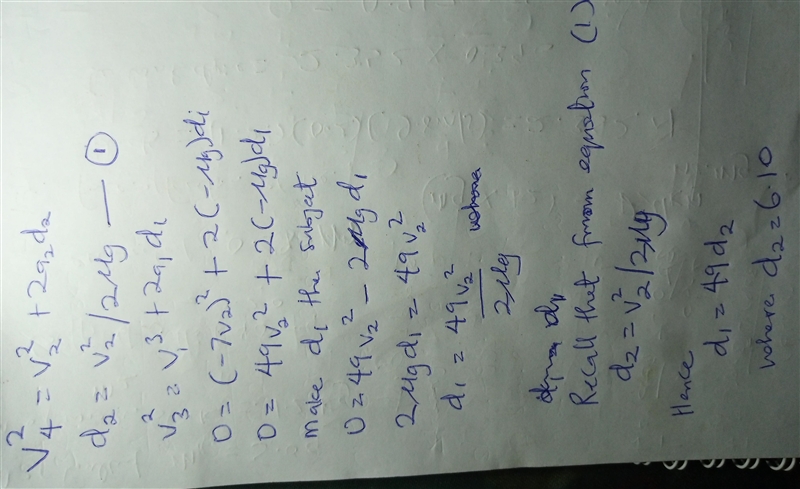 V₄² = V₂² + 2a₂d₂
d₂ = V₂²/2μg — ①
V₃² = V₁³ + 2a₁d₁
0 = (-7V₂)² + 2(-μg)d₁
0 = 49V₂² + 2(-μg)d₁
Make d₁ the subject
0 = 49V₂² - 2μg d₁
2μgd₁ = 49V₂²
d₁ = 49V₂²/2μg where
Recall that from equation (1)
d₂ = V₂²/2μg
Hence
d₁ = 49d₂
where d₂ = 6.10